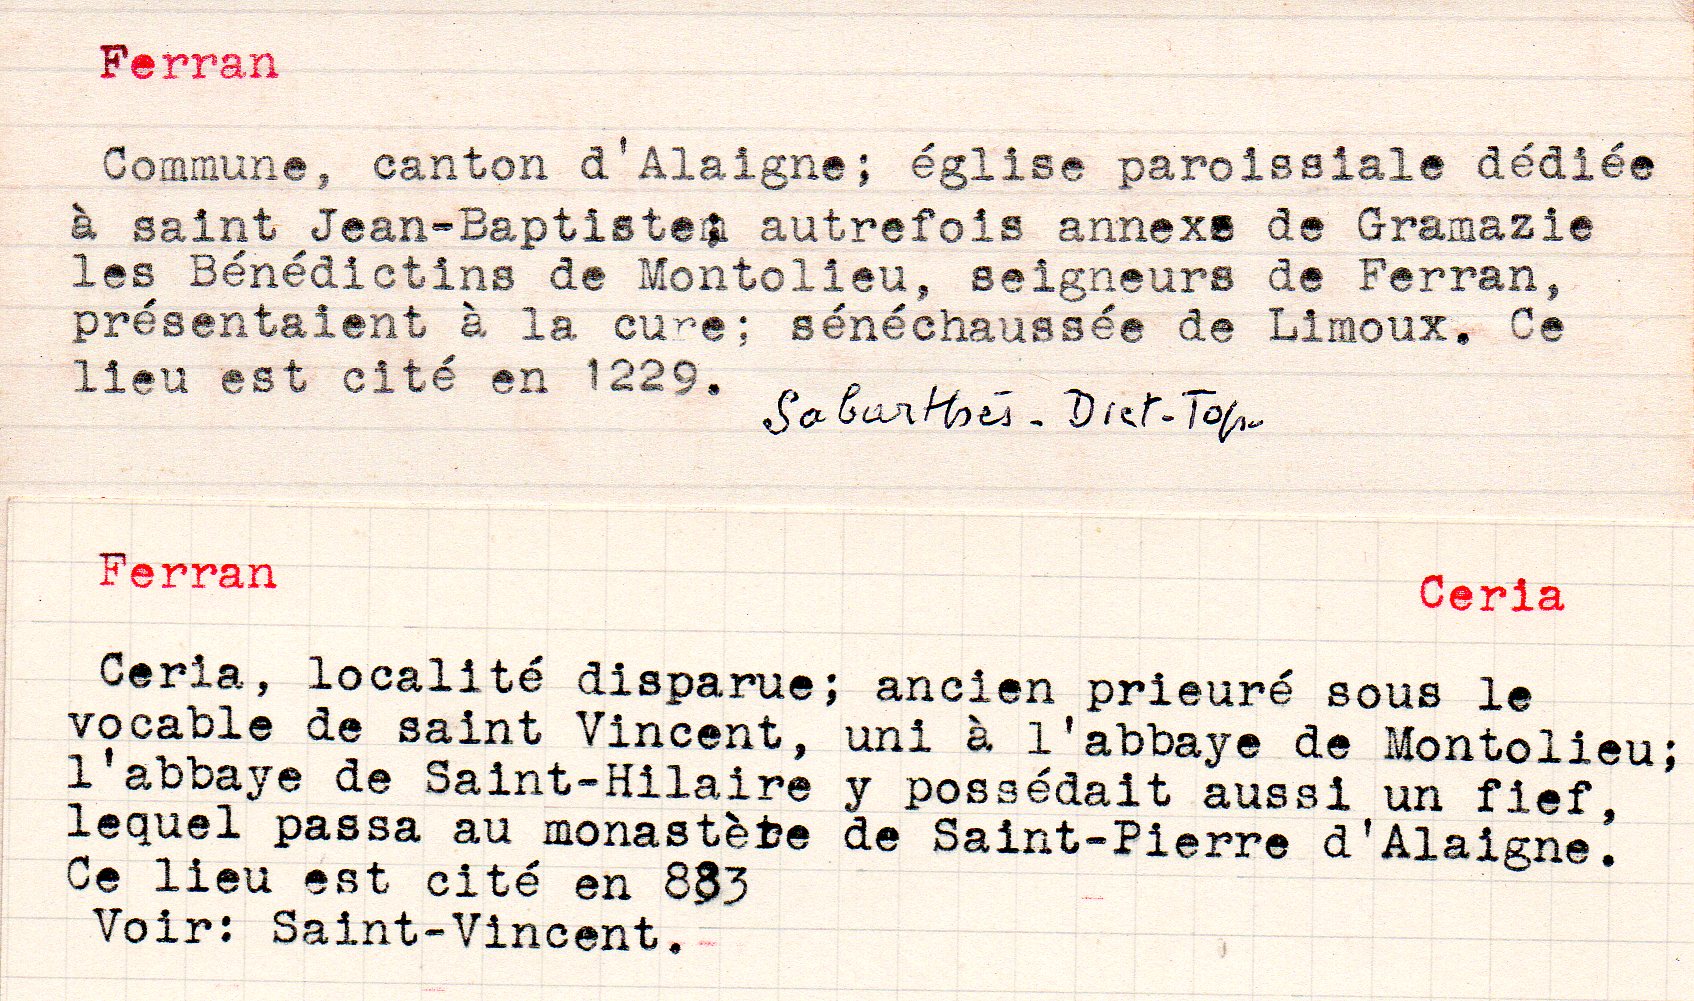 Ferran
Commune, canton d'Alaigne; église paroissiale dédiée
à saint Jean-Baptiste; autrefois annexe de Gramazie
les Bénédictins de Montolieu, seigneurs de Ferran,
présentaient à la cure; sénéchaussée de Limoux. Ce
lieu est cité en 1229.
Sabarthès - Dict-Top.
Ferran
Ceria
Ceria, localité disparue; ancien prieuré sous le
vocable de saint Vincent, uni à l'abbaye de Montolieu;
l'abbaye de Saint-Hilaire y possédait aussi un fief,
lequel passa au monastère de Saint-Pierre d'Alaigne.
Ce lieu est cité en
Voir: Saint-Vincent.